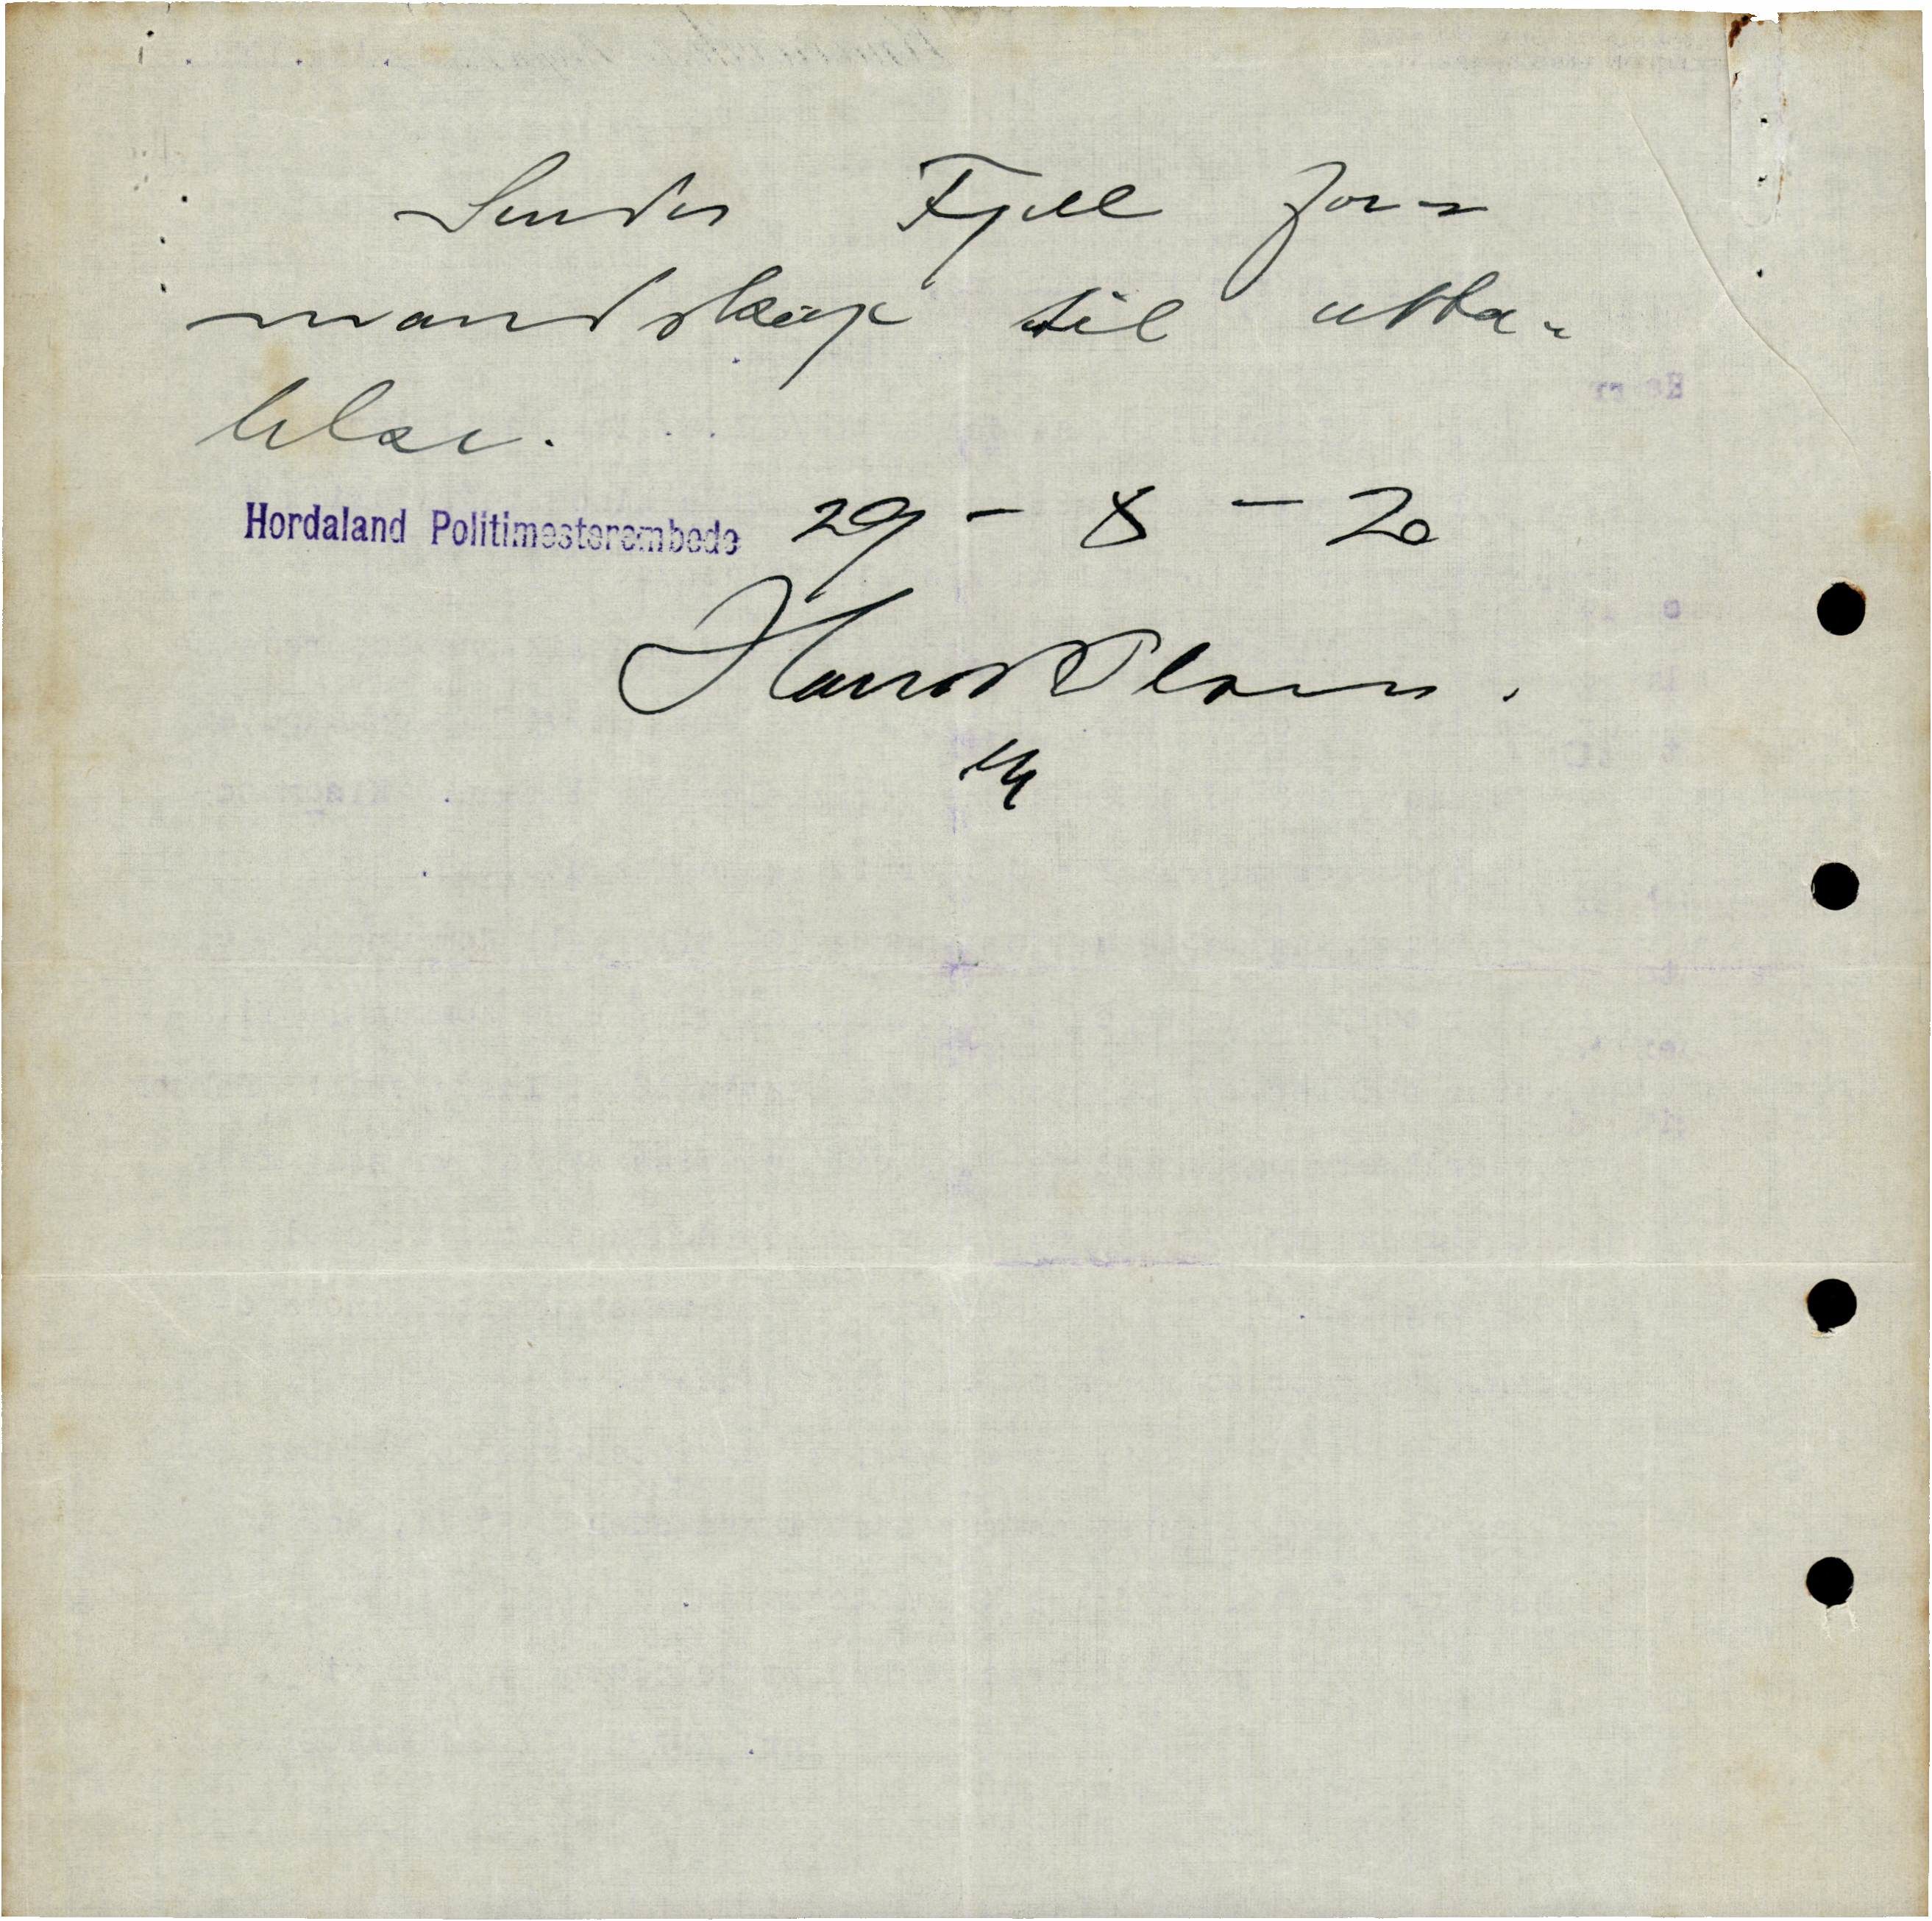 Sendes Fjell for-
mandskap til utta-
lelse.
Hordaland Politimesterembede 29 - 8 - 20